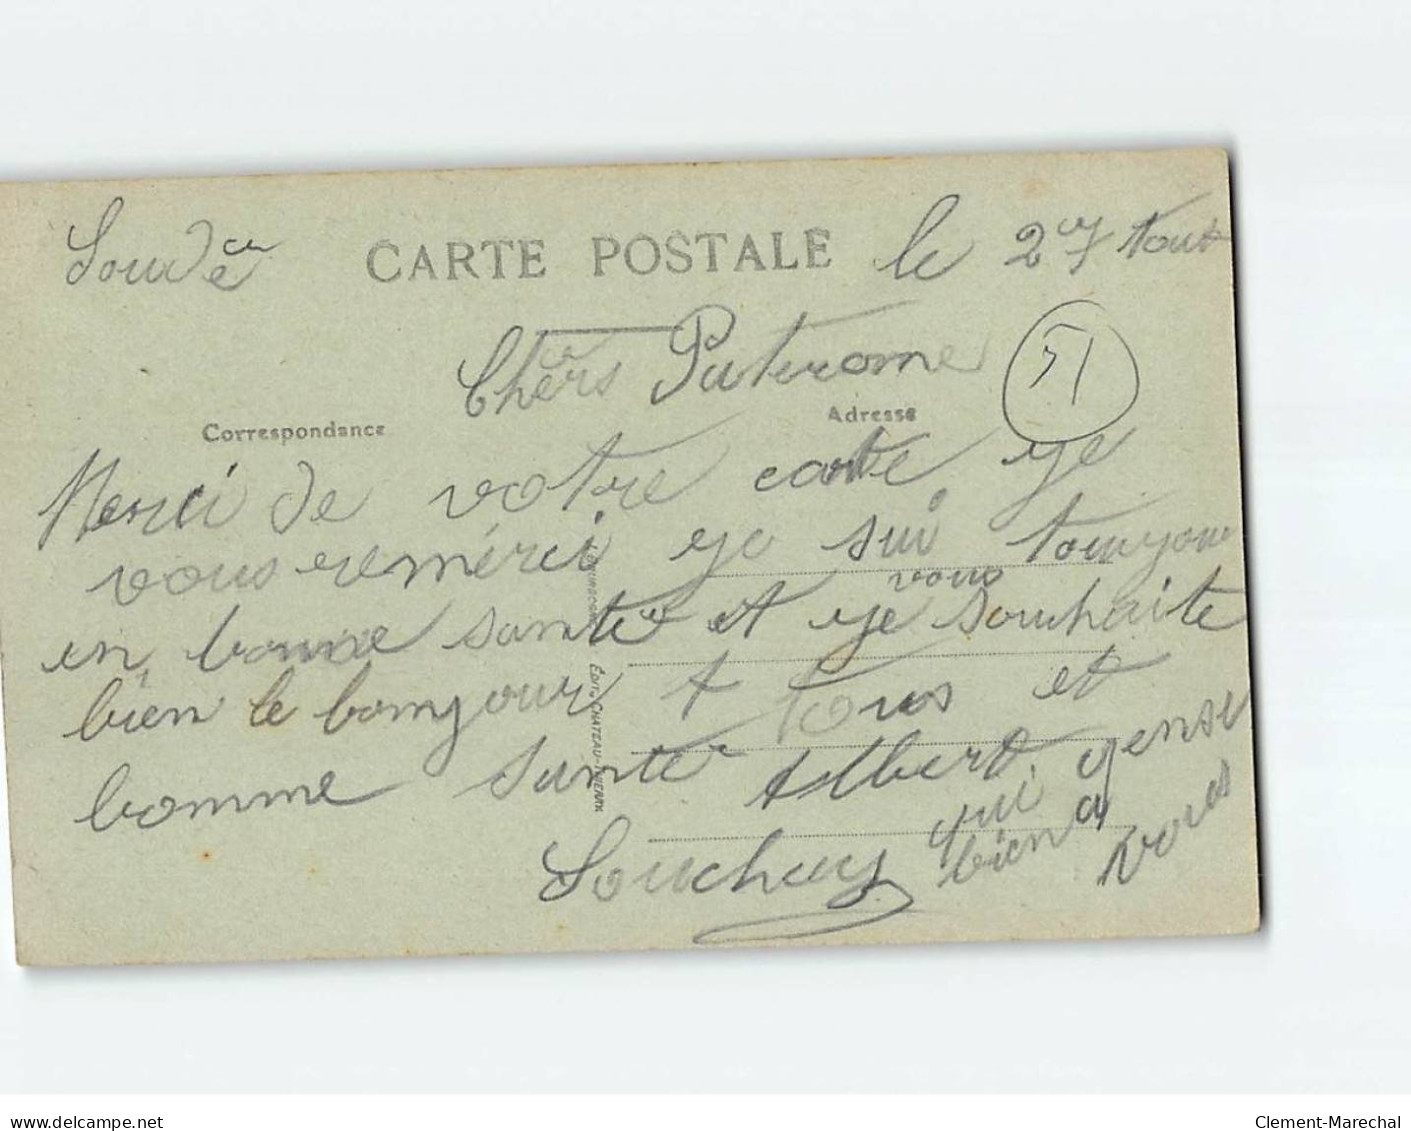 Soudé
CARTE POSTALE
le 27 Aout
Chers Patrome
51
Correspondance
Adresse
Merci de votre carte ye
vous remérci ye sui touyour
vous
en bonne santé et ye souhaite
bien le bonyour A tous et
bomme santé Albert
qui pense
bien a
vous
Souchay
ÉDIT. CHATEAU-THIERRY
delcampe.net
Clement-Marechal